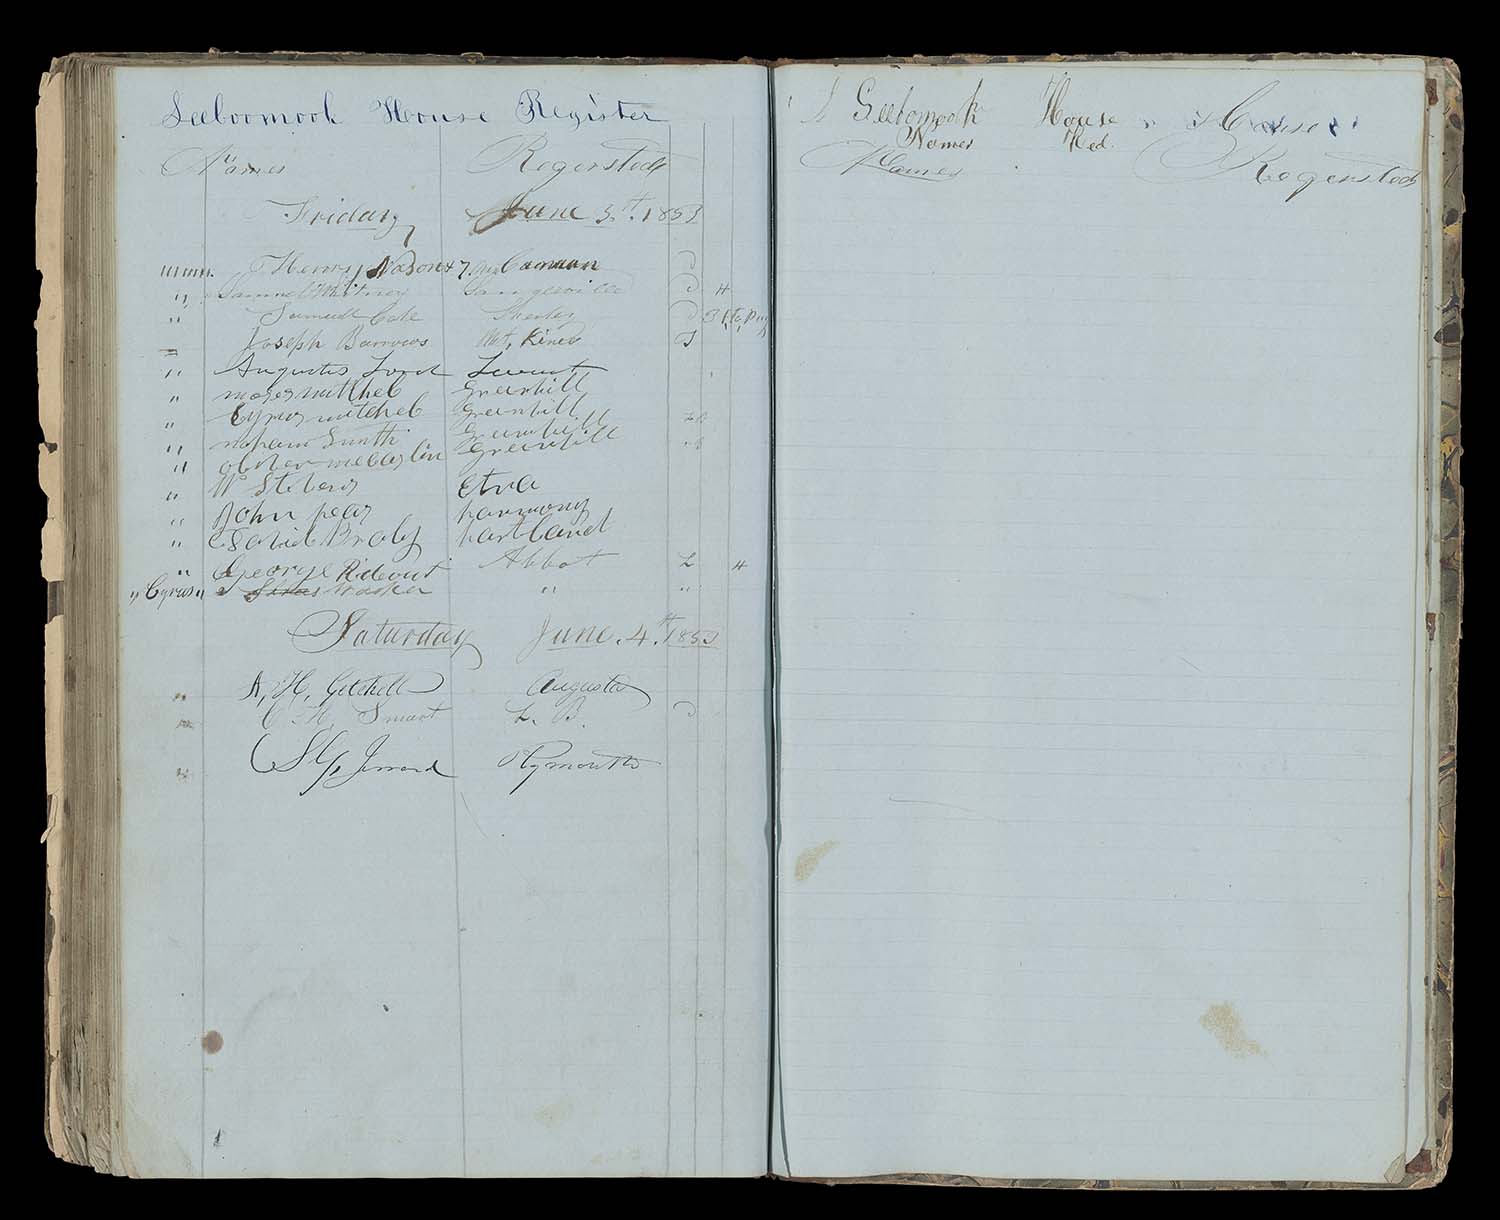 Seeboomook House Register
Names Regerstods
Friday June 3.th 1853
Henry Nason & 7 Canaan
" Samuel Whitney Sangerville H
" Samuel Cole
Joseph Barrows Mt, Kineo
" Augustus Lord
" moses mitthel Greenhill
" Cyrus mitchel Greenhill
" Smith Greenhill
" Greenhill
" Wm Stevens Etna
" John peas harmony
" David Braly hartland
" George Rideout Abbot L H
" Cyrus " Silas Walker " "
Saturday June. 4.th 1853
" A, H, Getchell Augusta
C H, Smart L. B.
" S G, Jerrard Plymouth
Seebomook House House
Names Red.
Names Regerstods